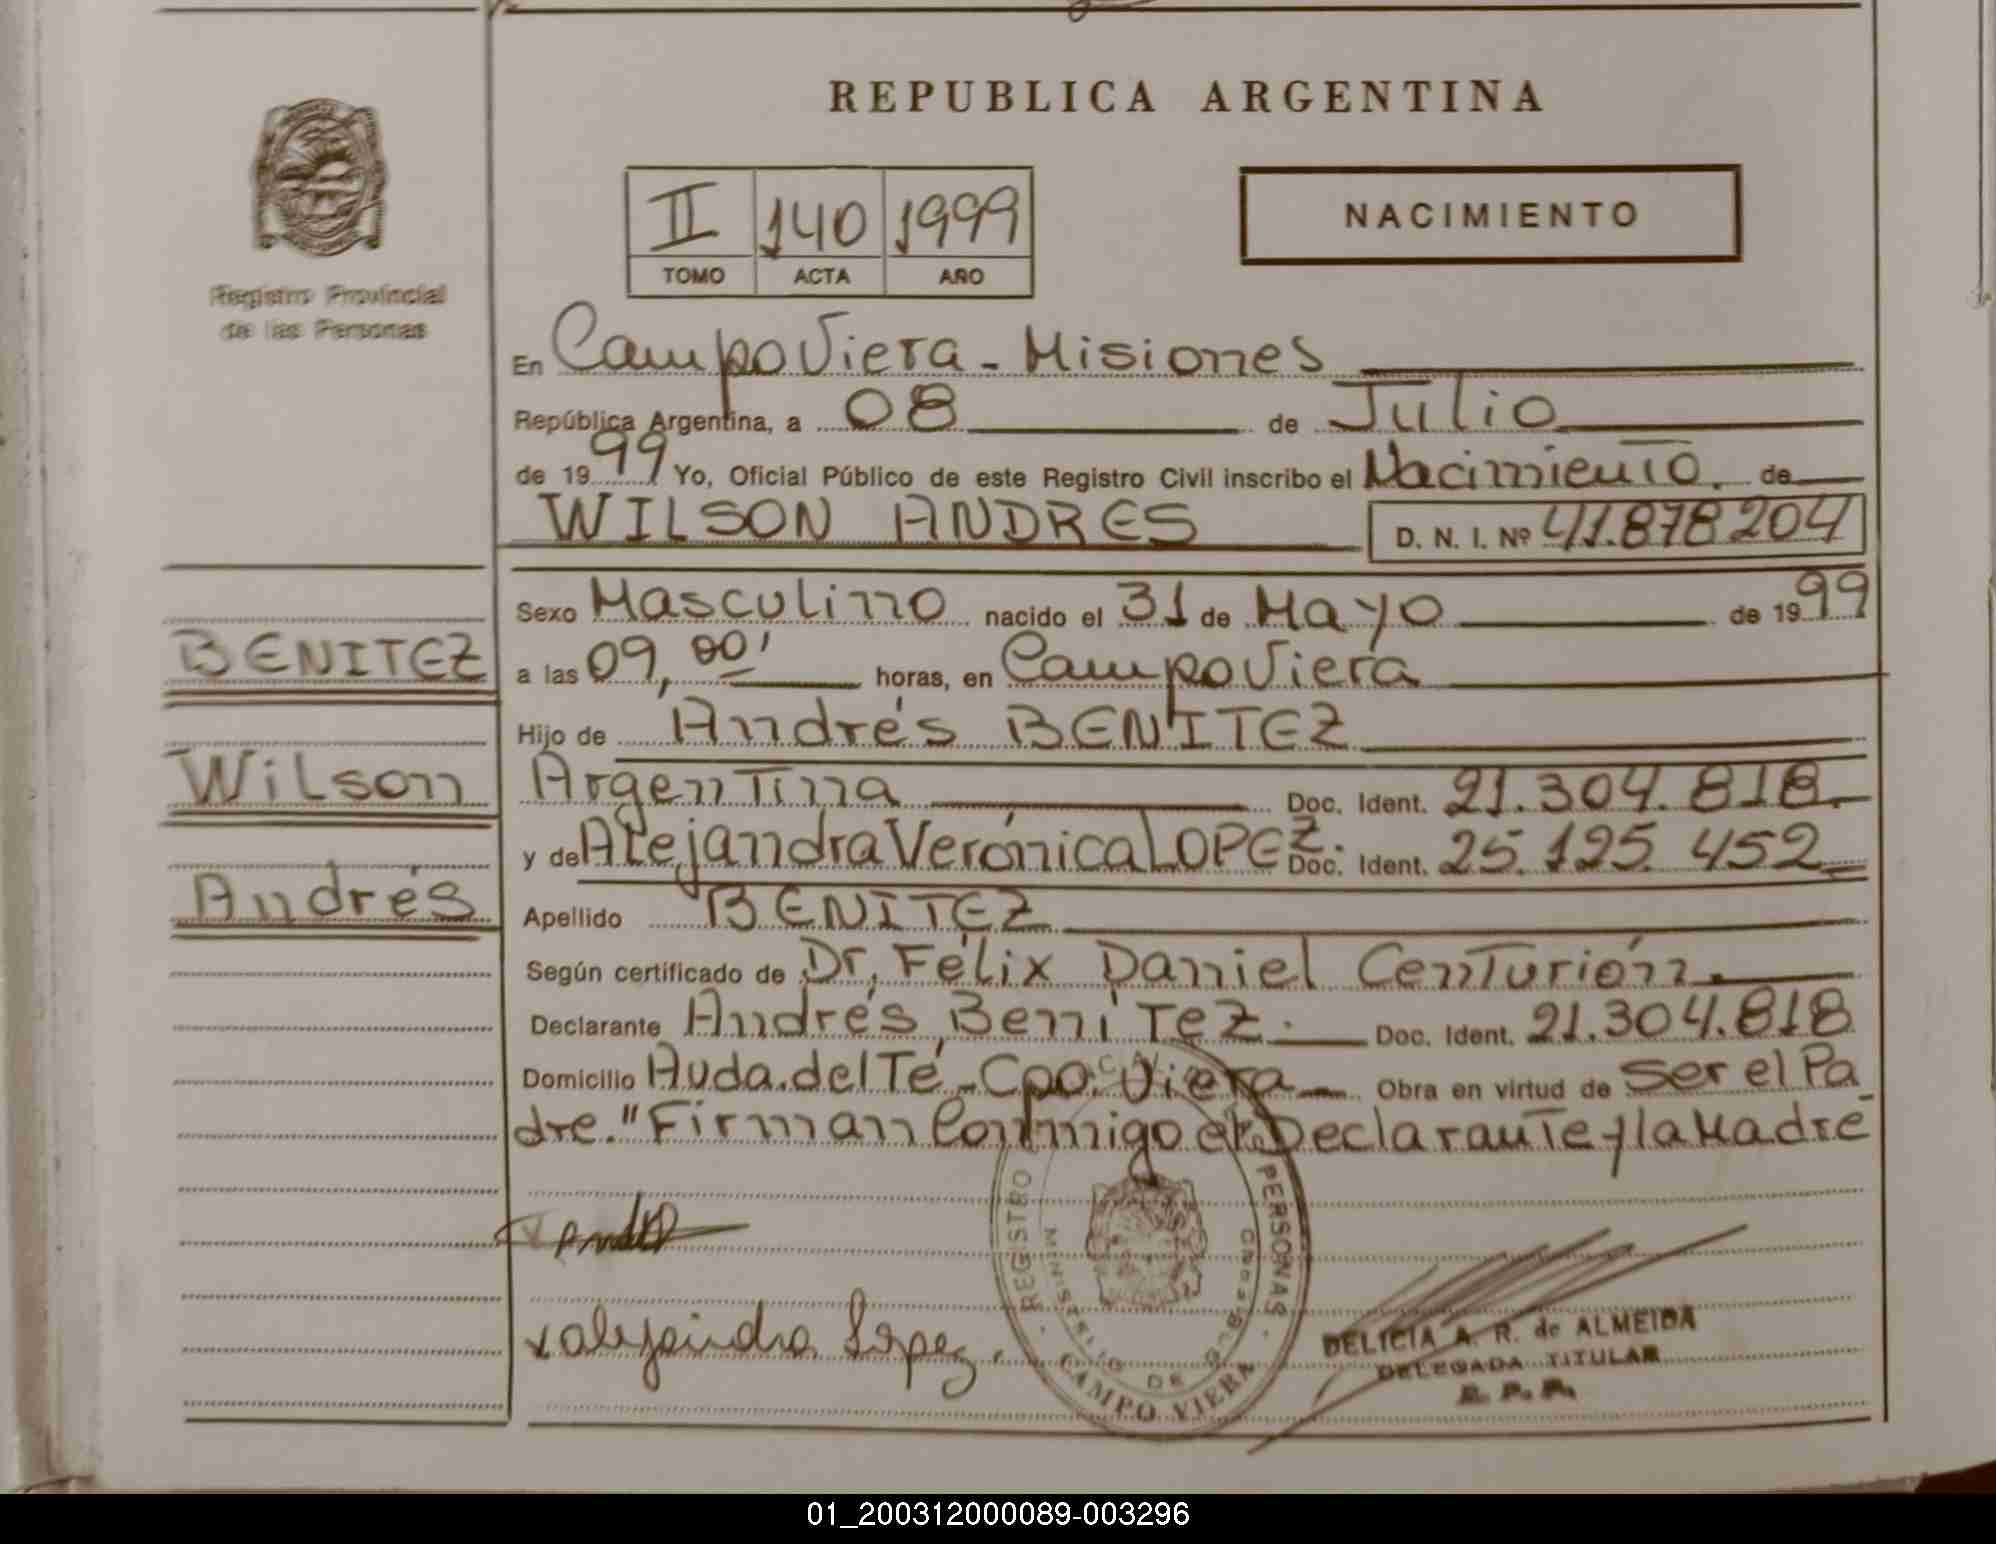 REPUBLICA ARGENTINA
Registro Provincial
de las Personas
II 140 1999
TOMO ACTA AÑO
NACIMIENTO
En Campo Viera - Misiones
República Argentina, a 08 de Julio
de 1999 Yo, Oficial Público de este Registro Civil inscribo el Nacimiento. de
WILSON ANDRES D. N. I. Nº 41.878204
Sexo Masculino nacido el 31 de Mayo de 1999
a las 09,00' horas, en Campo Viera
Hijo de Andrés BENITEZ
Argentina Doc. Ident. 21.304.818.
y de Alejandra Verónica LOPEZ. Doc. Ident. 25.125.452
Apellido BENITEZ
Según certificado de Dr. Félix Daniel Centurión.
Declarante Andrés Benitez. Doc. Ident. 21.304.818
Domicilio Avda. del Té - Cpo. Viera Obra en virtud de ser el Pa
dre." Firman Conmigo el Declarante y la Madre
BENITEZ
Wilson
Andrés
x alejandra Lopez.
REGISTRO PERSONAS
MINISTERIO DE GOBIERNO
CAMPO VIERA
DELICIA A. R. de ALMEIDA
DELEGADA TITULAR
R. P. P.
01_200312000089-003296